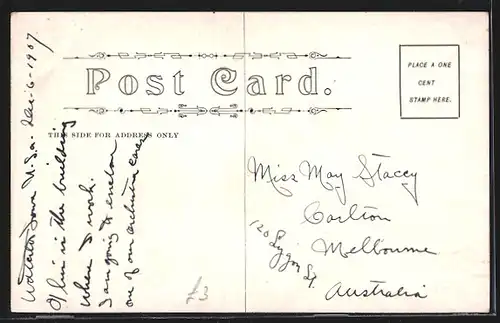 Post Card.
PLACE A ONE
CENT
STAMP HERE.
THIS SIDE FOR ADDRESS ONLY
Waterloo Iowa U.S.a. Dec-6-1907
is in the building
where I work.
I am going to enclose
one of our orchestra cards
Miss May Stacey
Carlton
120 Lygon St.
Melbourne
Australia